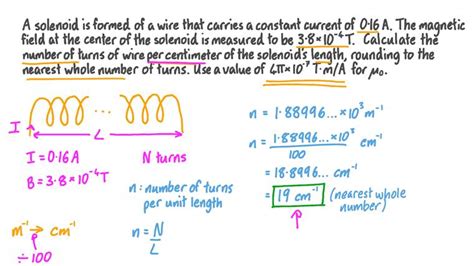 A solenoid is formed of a wire that carries a constant current of 0·16 A. The magnetic
field at the center of the solenoid is measured to be 3·8×10⁻⁴ T. Calculate the
number of turns of wire per centimeter of the solenoid's length, rounding to the
nearest whole number of turns. Use a value of 4π×10⁻⁷ T·m/A for μ₀.
I
L
I = 0·16 A
N turns
B = 3·8×10⁻⁴ T
n: number of turns
per unit length
m⁻¹ → cm⁻¹
÷100
n = N/L
n = 1·88996... ×10³ m⁻¹
n = 1·88996... ×10³ / 100 cm⁻¹
= 18·8996... cm⁻¹
= 19 cm⁻¹ (nearest whole
number)